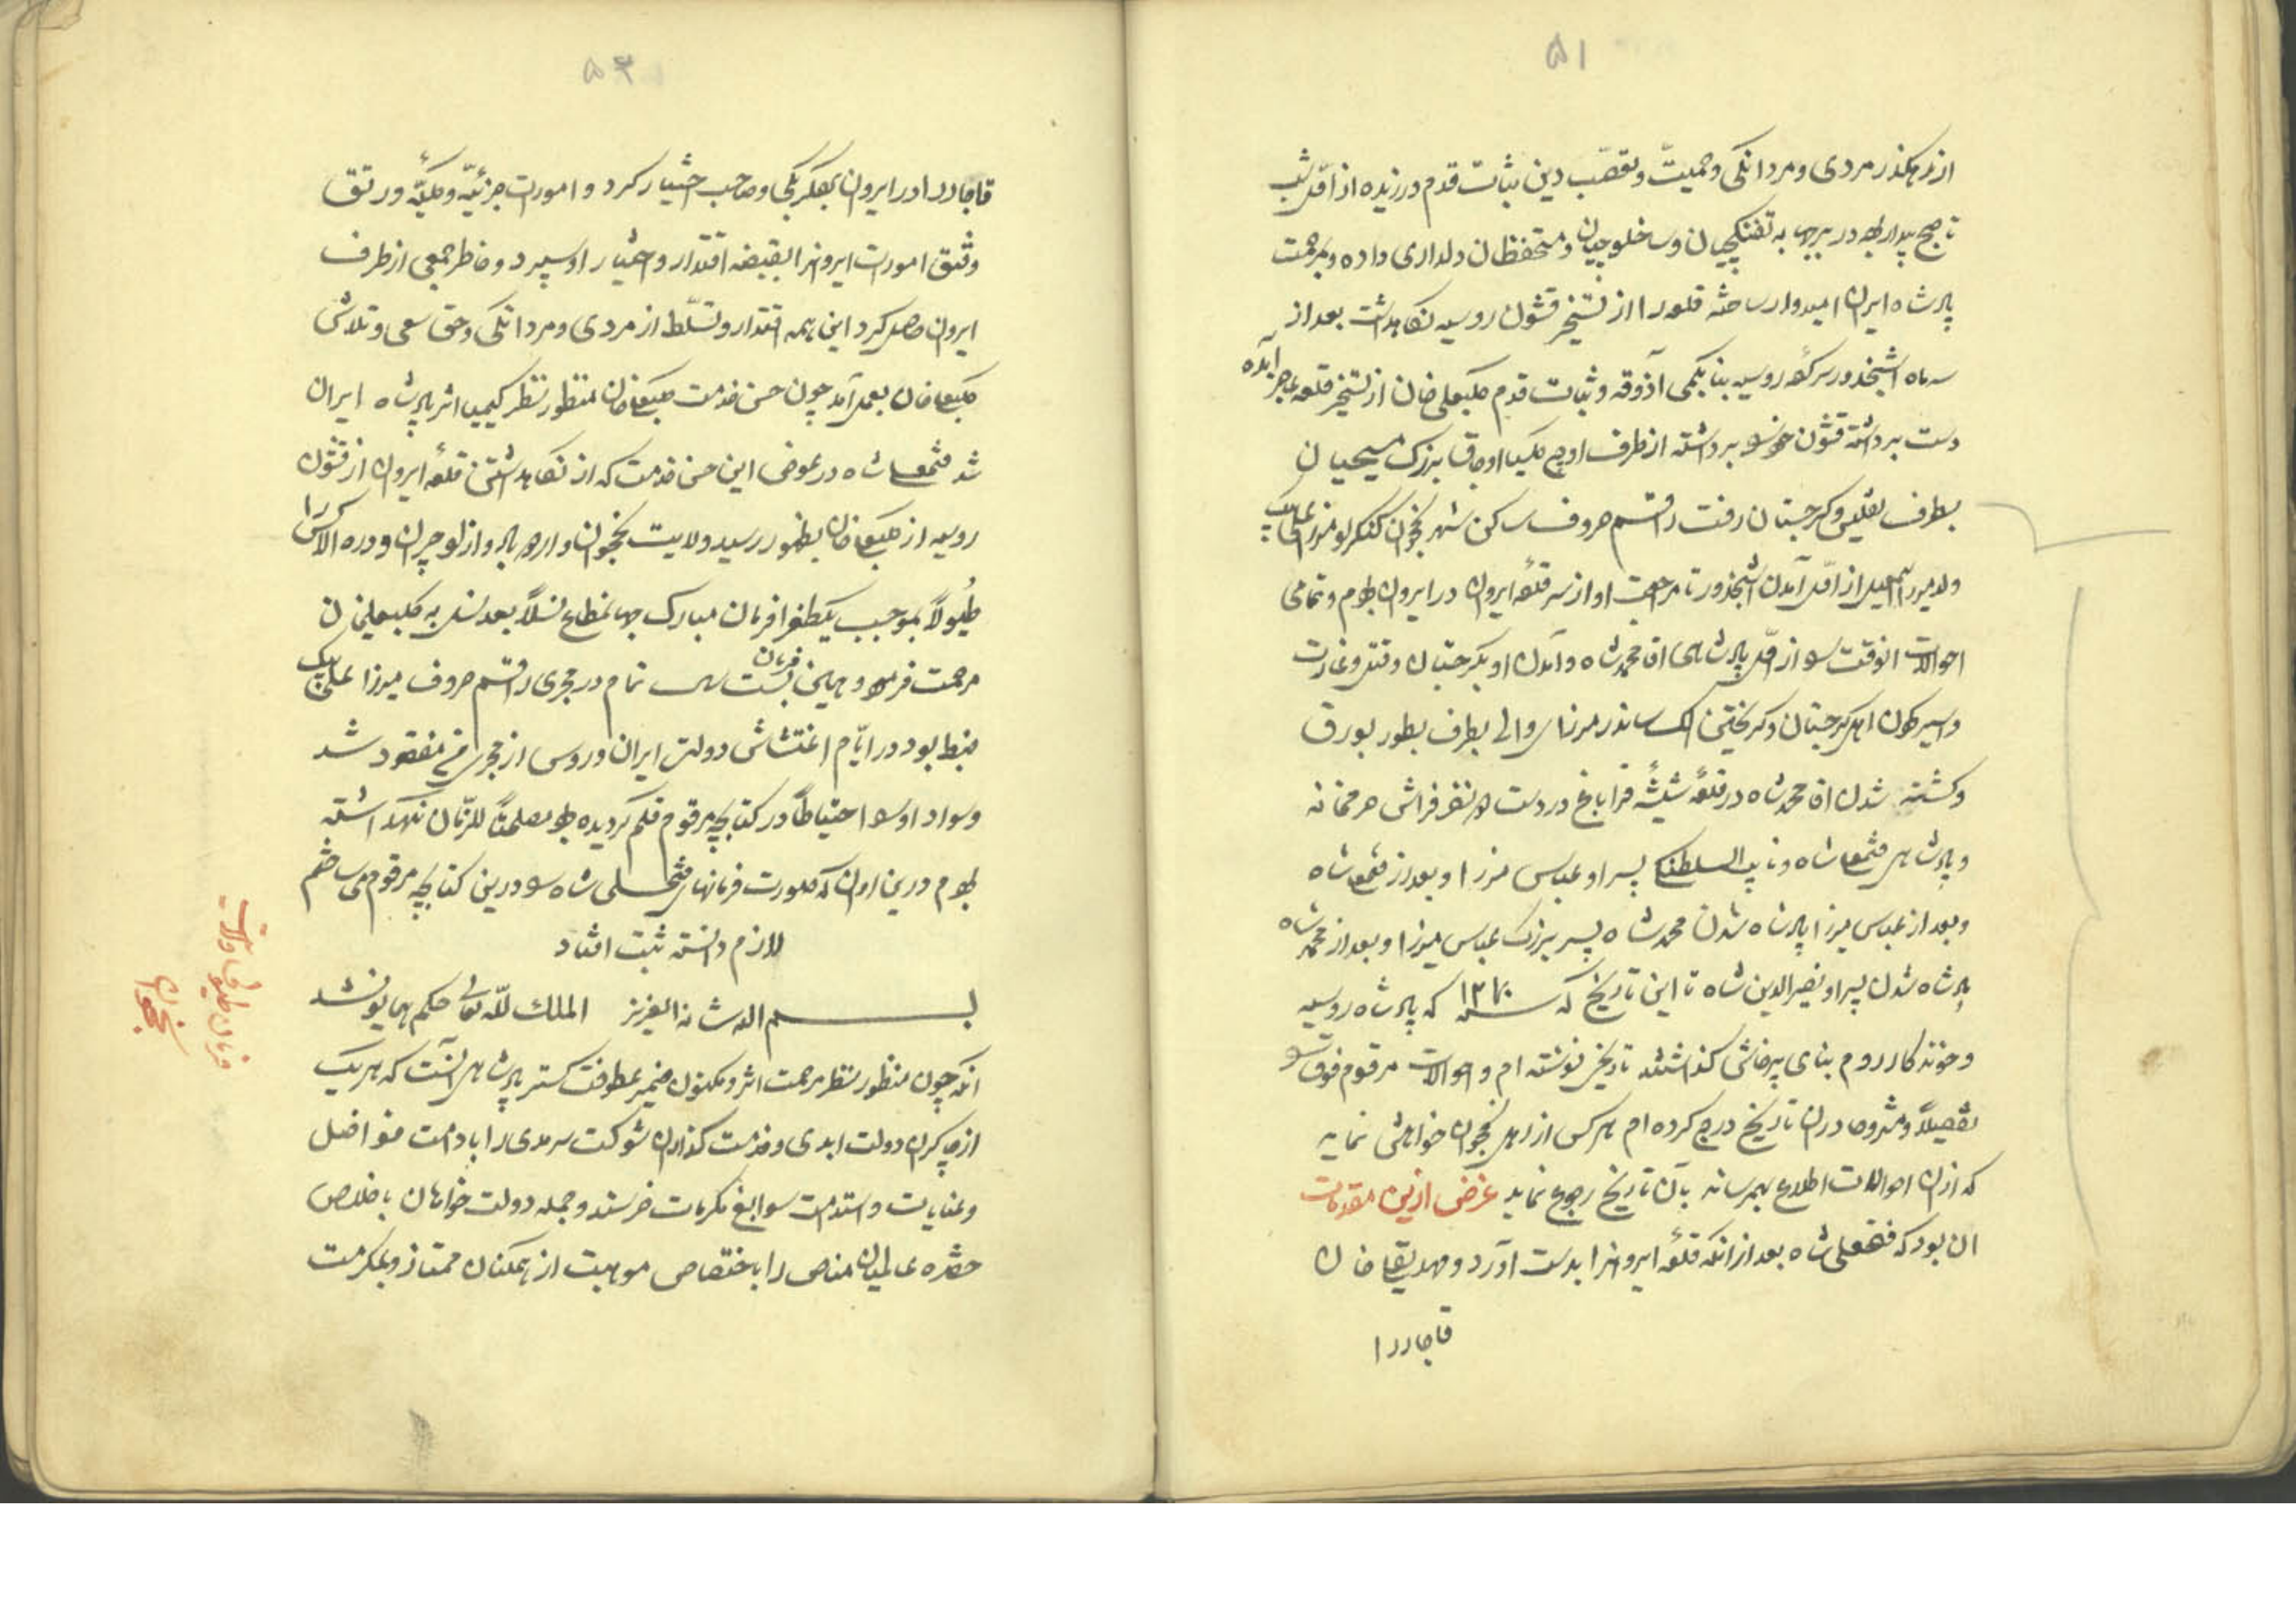 ۵۱
از رهگذر مردی و مردانگی و حمیت و تعصّب دین بثبات قدم ورزیده از اوّل شب
تا صبح بیدار بوده در برجها به تفنگچیان و ساخلوچیان و مستحفظان دلداری داده و بمرحمت
پادشاه ایران امیدوار ساخته قلعه را از تسخیر قشون روسیه نگاهداشت بعد از
سه ماه اشپخدور سرکرده روسیه بنا بکمی آذوقه و ثبات قدم کلبعلی خان از تسخیر قلعه عاجز آمده
دست برداشته قشون خود را برداشته از طرف اوچ کلیسا اوجاق بزرک مسیحیان
بطرف تفلیس و گرجستان رفت راقم حروف ساکن شهر نخجوان کنگرلو میرزا علی بیک
ولد میرزا اسمعیل از اوّل آمدن اشپخدور تا مراجعت او از سر قلعهٔ ایروان در ایروان بودم و تمامی
احوالات انوقت را از اوّل پادشاهی اقا محمد شاه و آمدن او بگرجستان و قتل و غارت
و اسیر کردن اهل گرجستان و گریختن الکساندر میرزای والی بطرف بطور بورق
و کشته شدن اقا محمد شاه در قلعهٔ شیشهٔ قراباغ در دست دو نفر فراش خلوت
و پادشاهی فتحعلی شاه و نایب السلطنگی پسر او عباس میرزا و بعد از فتحعلی شاه
و بعد از عباس میرزا پادشاه شدن محمد شاه پسر بزرک عباس میرزا و بعد از محمد شاه
پادشاه شدن پسر او نصیرالدین شاه تا این تاریخ که سنه ۱۲۷۰ که پادشاه روسیه
و خوندکار روم بنای پرخاش گذاشتند تاریخی نوشته ام و احوالات مرقوم فوق را
تفصیلاً و مشروحاً در ان تاریخ درج کرده ام هر کس از اهل نخجوان خواهش نماید
که از ان احوالات اطلاع بهمرساند بآن تاریخ رجوع نماید غرض از این مقدمات
ان بود که فتحعلی شاه بعد از انکه قلعهٔ ایروانرا بدست آورد و مهدیقلی خان
قاجار را
۵۲
قاجار را در ایروان بیگلربیگی و صاحب اختیار کرد و امورات جزئیّه و کلیّه و رتق
و فتق امورات ایروانرا بقبضه اقتدار و اختیار او سپرد و خاطر جمعی از طرف
ایروان حاصل کرد این همه اقتدار و تسلّط از مردی و مردانگی و حق سعی و تلاش
کلبعلی خان بعمل آمد چون حسن خدمت کلبعلی خان منظور نظر کیمیا اثر پادشاه ایران
شد فتحعلی شاه در عوض این حسن خدمت که از نگاهداشتن قلعهٔ ایروان از قشون
روسیه از کلبعلی خان بظهور رسید ولایت نخجوان و اردوباد و ازلوچران و دره الاکز را
طیولاً بموجب یکطغرا فرمان مبارک جهانمطاع نسلاً بعد نسل به کلبعلیخان
مرحمت فرمود و همین فرمان بیست سال تمام در مجری راقم حروف میرزا علی بیک
ضبط بود در ایّام اغتشاش دولت ایران و روس از مجری من مفقود شد
و سواد او را احتیاطاً در کتابچه مرقوم قلم گردیده بود مصلحتاً للزّمان نگهداشته
بودم درین اوان که صورت فرمانهای فتحعلی شاه را درین کتابچه مرقوم می ساختم
لازم دانسته ثبت افتاد
بسم الله شانه العزیز الملک لله تعالی حکم همایون شد
انکه چون منظور نظر مرحمت اثر و مکنون ضمیر عطوفت گستر پادشاهی آنست که هر یک
از چاکران دولت ابدی و خدمت گذاران شوکت سرمدی را بادامت فواضل
و عنایات و استدامت سوابغ مکرمات خرسند و جمله دولت خواهان با خلاص
حضرة عالمیان مناص را باختصاص موهبت از همگنان ممتاز و بمکرمت
فرمان طیولی ولایت
نخجوان